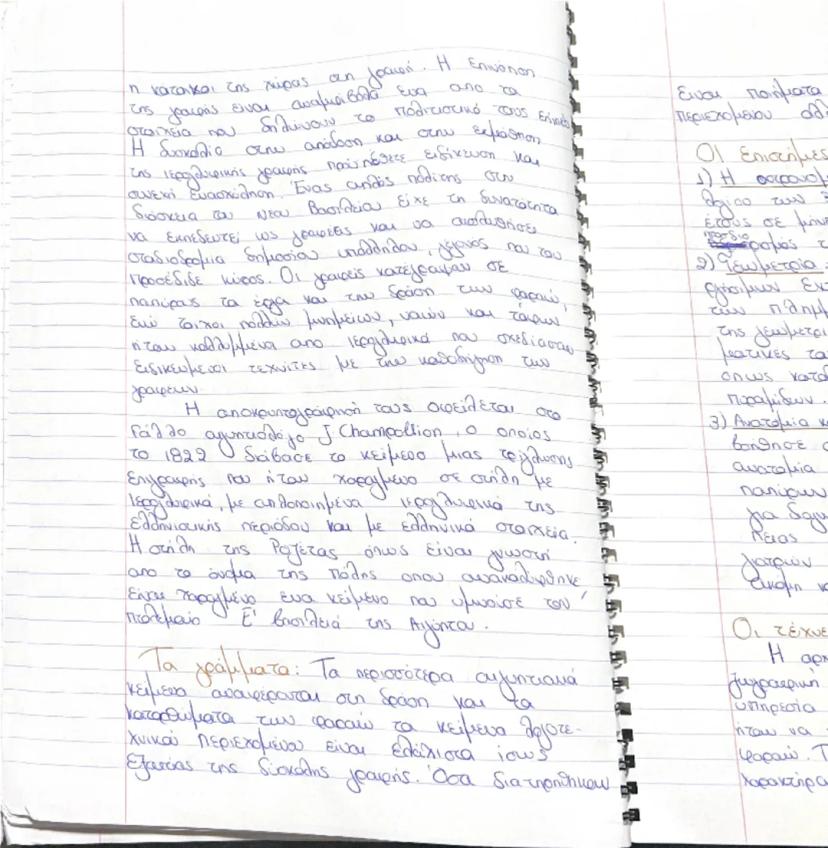 η κατοικοι της χώρας στη γραφή. Η επινόηση
της γραφής ειναι αναμφίβολα ενα απο τα
στοιχεια που δηλώνουν το πολιτιστικό τους επίπεδο
Η δυσκολία στην απόδοση και στην εκμάθηση
της ιερογλυφικής γραφης προϋπόθετε ειδίκευση και
συνεχή ενασχόληση. Ένας απλός πολίτης στη
διάρκεια του Νέου Βασιλείου είχε τη δυνατότητα
να εκπαιδευτεί ως γραφέας και να ακολουθήσει
σταδιοδρομία δημοσίου υπαλλήλου, γεγονος που του
προσέδιδε κύρος. Οι γραφείς κατέγραφαν σε
παπύρους τα έργα και την δράση των φαραώ,
ενώ τοιχοι πολλών μνημείων, ναών και τάφων
ήταν καλλυμμένα απο ιερογλυφικά που σχεδίασαν
ειδικευμενοι τεχνίτες με την καθοδήγηση των
γραφεων.
Η αποκρυπτογράφησή τους οφείλεται στο
Γάλλο αιγυπτιολόγο J Champollion, ο οποίος
το 1822 διάβασε το κείμενο μιας τρίγλωσσης
επιγραφής που ήταν χαραγμενο σε στήλη με
ιερογλυφικά, με απλοποιημένα ιερογλυφικά της
ελληνιστικής περιόδου και με ελληνικά στοιχεία.
Η στήλη της Ροζέτας όπως είναι γνωστή
απο το όνομα της πόλης οπου ανακαλύφθηκε,
είναι χαραγμένο ενα κείμενο που υμνούσε τον
Πτολεμαίο Ε' βασιλειά της Αιγύπτου.
Τα γράμματα: Τα περισσότερα αιγυπτιακά
κείμενα αναφέρονται στη δράση και τα
κατορθώματα των φαραώ τα κείμενα λογοτε-
χνικού περιεχομένου είναι ελάχιστα ίσως
εξαιτίας της δύσκολης γραφής. Όσα διατηρήθηκαν
ειναι ποιήματα
περιεχομένου αλλ
Οι επιστήμες
1) Η αστρονομ
έτους σε μήν
2) Γεωμετρία
των πλημμ
της γεωμετρι
ματικες τα
όπως κατα
πυραμίδων.
3) Ανατομία κ
βοήθησε
ανατομία
παπύρων
για
γιατρών
ακόμη κ
Οι τέχνε
Η αρχ
ζωγραφική
υπηρεσία
ήταν να
φαραώ. Τ
χαρακτήρα